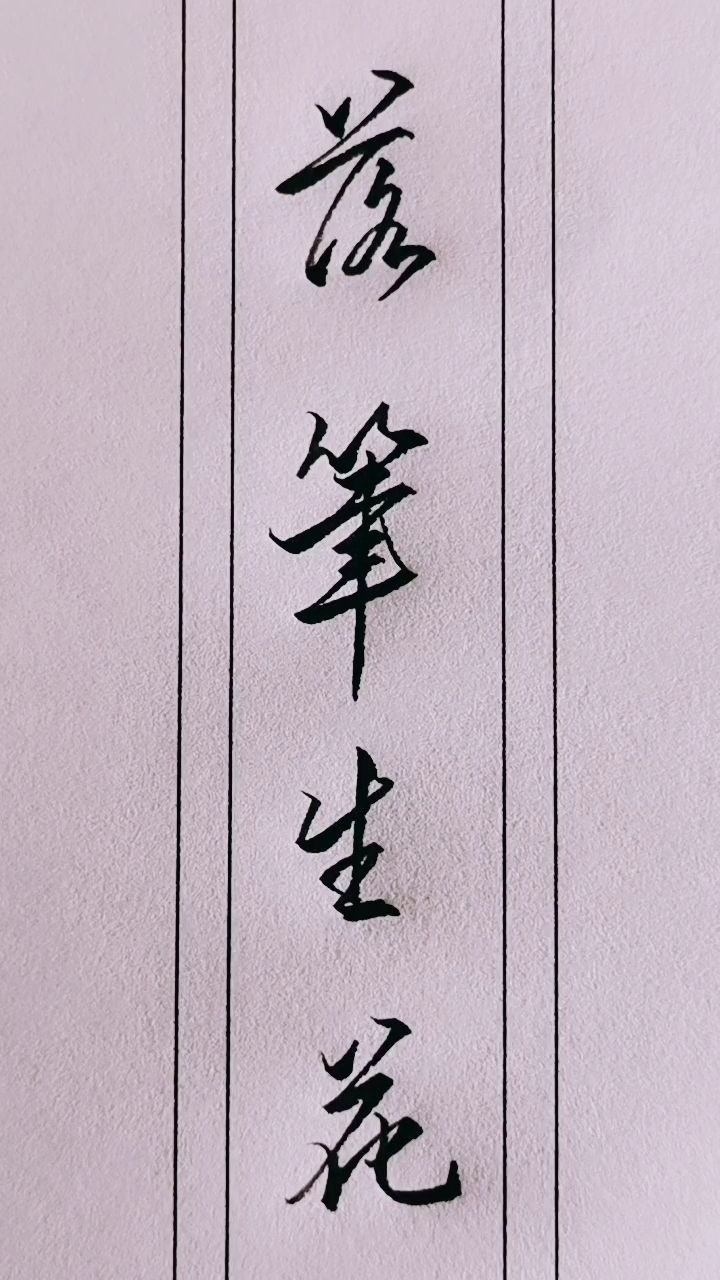 落筆生花